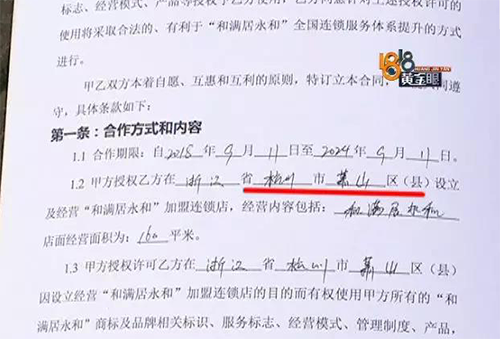 标志、经营模式、产品等授权予乙方使用，乙方同意在上述授权许可的
使用将采取合法的、有利于“和满居永和”全国连锁服务体系提升的方式
进行。
1818
黄金眼
甲乙双方本着自愿、互惠和互利的原则，特订立本合同，同遵
守，具体条款如下：
第一条：合作方式和内容
1.1 合作期限：自 2018 年 9 月 11 日至 2024 年 9 月 11 日。
1.2 甲方授权乙方在 浙江 省 杭州 市 萧山 区（县）设立
及经营“和满居永和”加盟连锁店，经营内容包括：和满居永和
店面经营面积为：160 平米。
1.3 甲方授权许可乙方在 浙江 省 杭州 市 萧山 区（县）
因设立经营“和满居永和”加盟连锁店的目的而有权使用甲方所有的“和
满居永和”商标及品牌相关标识、服务标志、经营模式、管理制度、产品，